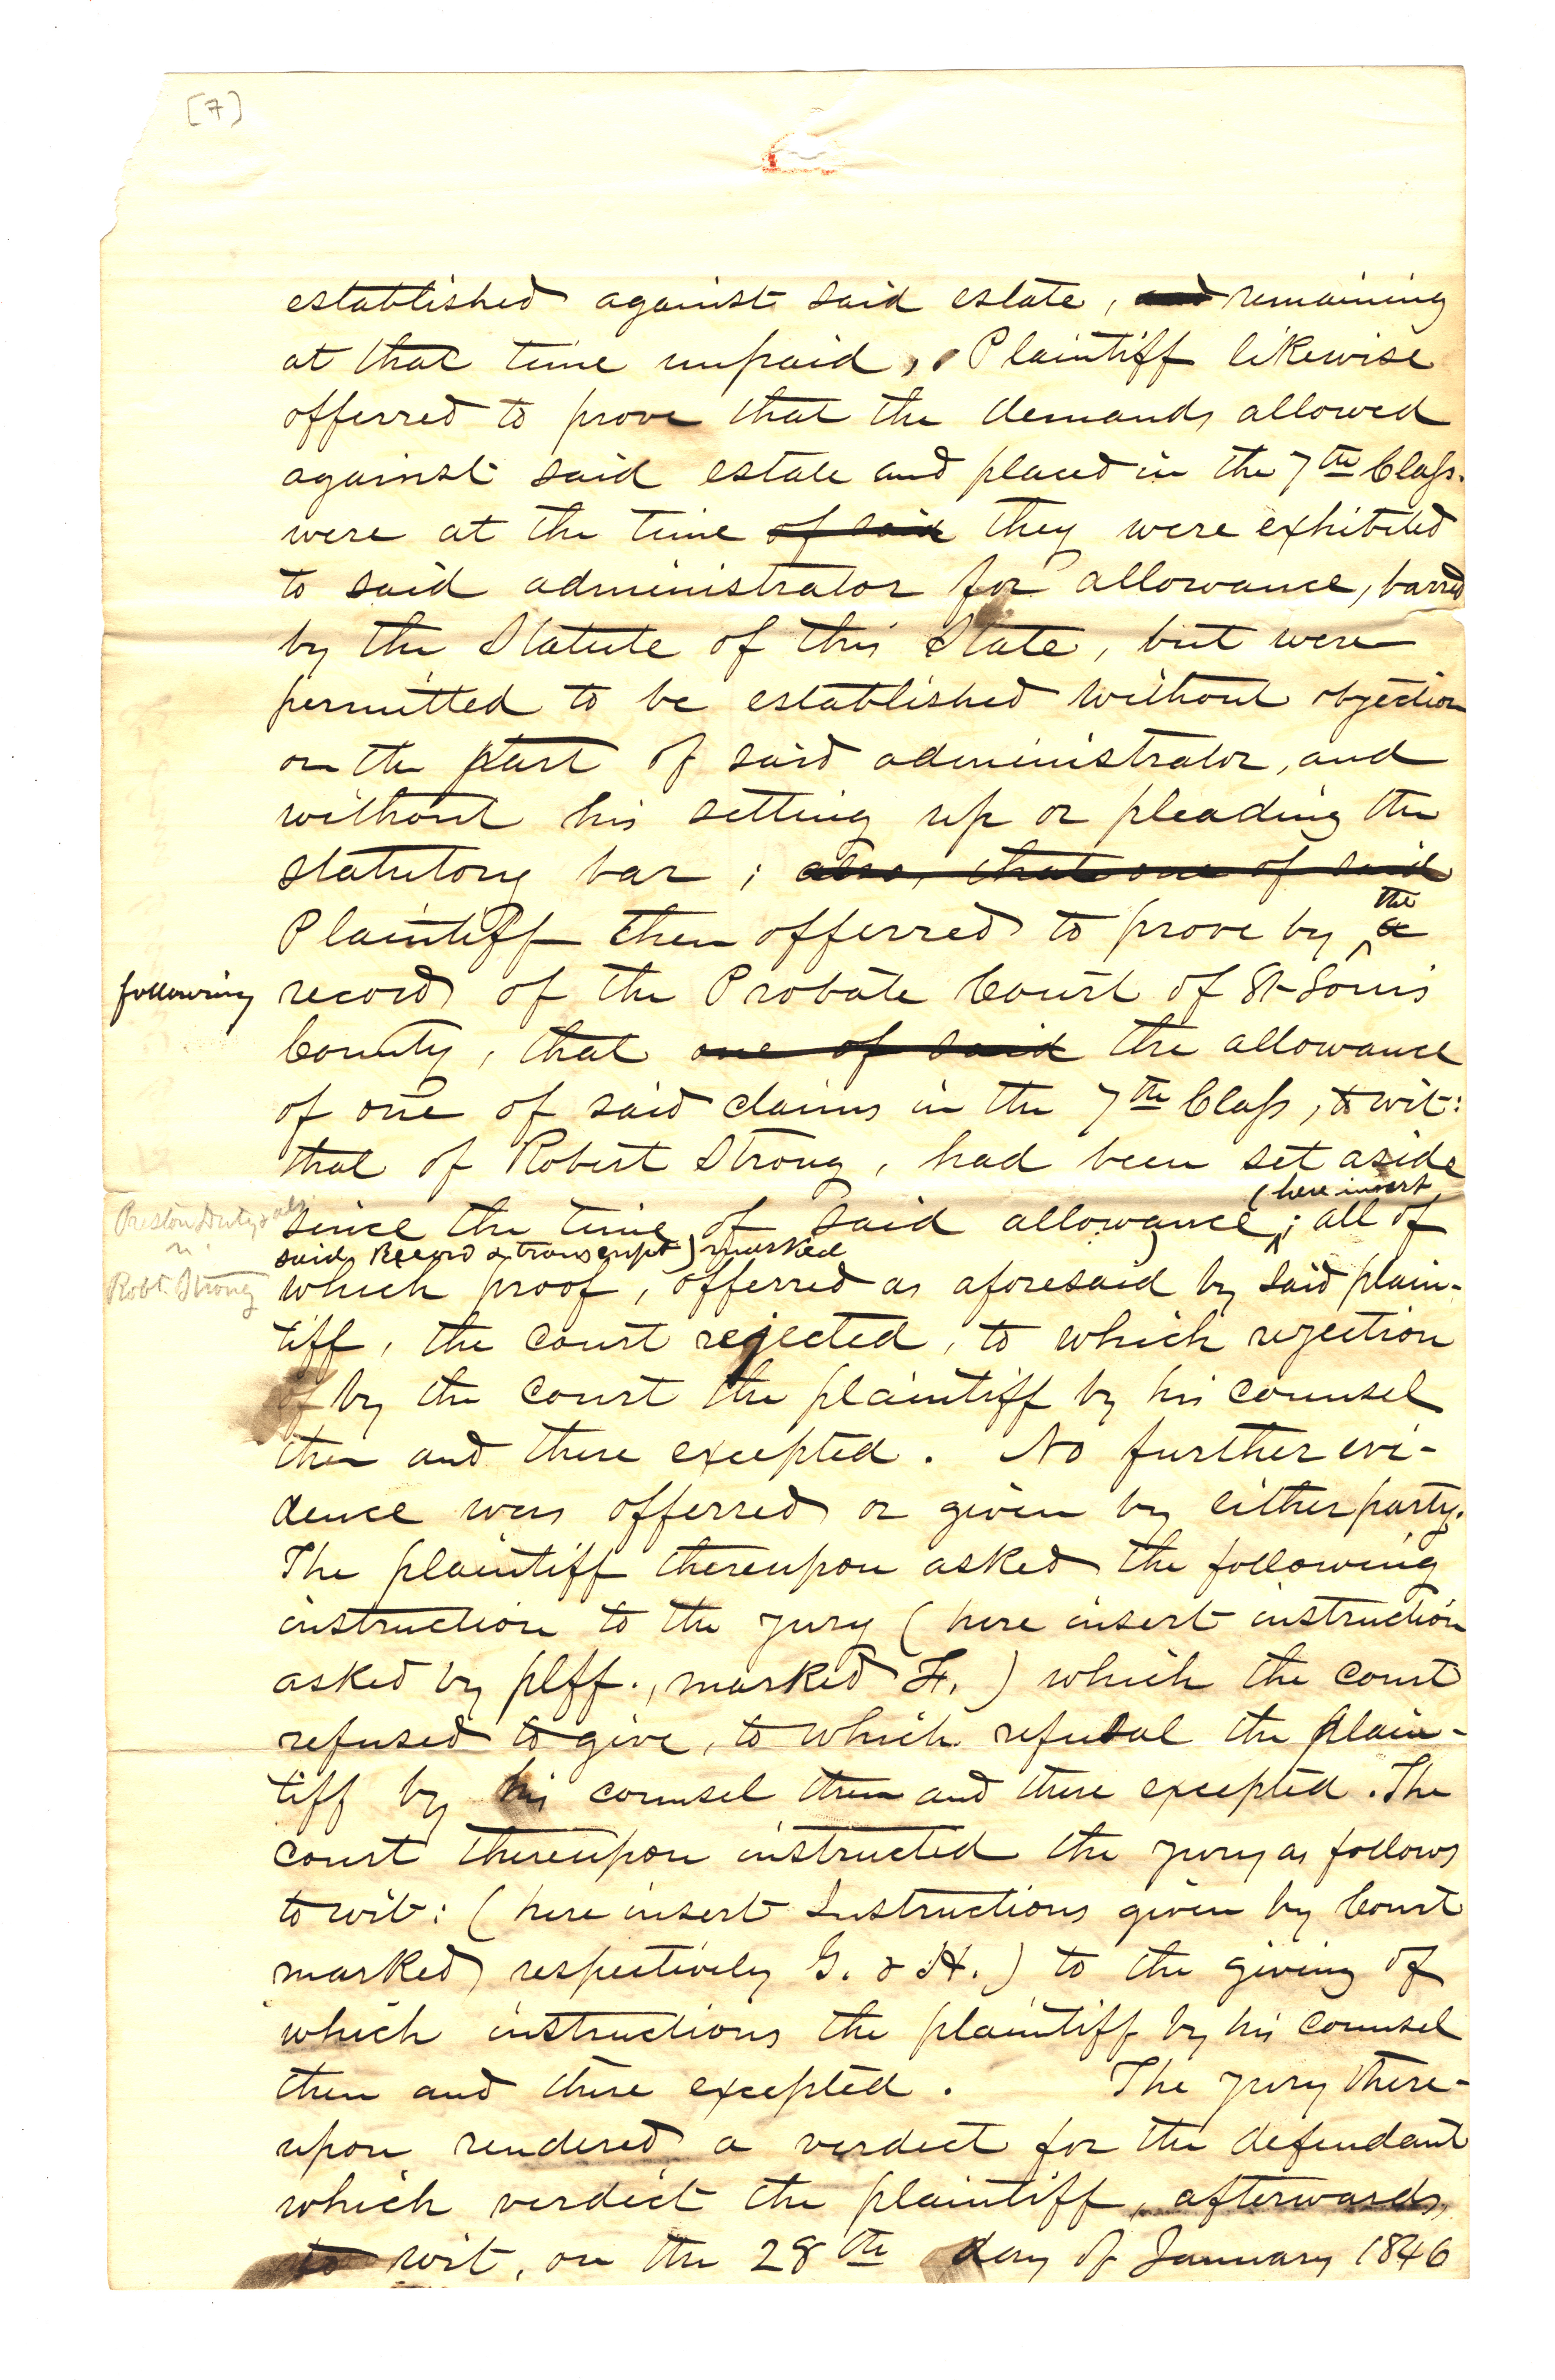 [7]
established against said estate, and remaining
at that time unpaid, Plaintiff likewise
offerred to prove that the demands allowed
against said estate and placed in the 7th Class.
were at the time of said they were exhibited
to said administrator for allowance, barred
by the Statute of this State, but were
permitted to be established without objection
on the part of said administrator, and
without his setting up or pleading the
statutory bar; also, that one of said
the
Plaintiff then offerred to prove by a
following record of the Probate Court of St Louis
County, that one of said the allowance
of one of said claims in the 7th Class, to wit:
that of Robert Strong, had been set aside
(here insert
Preston Duty's
since the time of said allowance; all of
said Record & transcript) marked
Robt. Strong
which proof, offerred as aforesaid by said plain-
tiff, the court rejected, to which rejection
of by the court the plaintiff by his counsel
then and there excepted. No further evi-
dence was offerred or given by either party.
The plaintiff thereupon asked the following
instruction to the jury (here insert instruction
asked by plff., marked F.) which the court
refused to give, to which refusal the plain-
tiff by his counsel then and there excepted. The
court thereupon instructed the jury as follows
to wit: (here insert Instructions given by Court
marked respectively G. & H.) to the giving of
which instructions the plaintiff by his counsel
then and there excepted. The jury there-
upon rendered a verdict for the defendant
which verdict the plaintiff, afterwards,
to wit, on the 28th day of January 1846